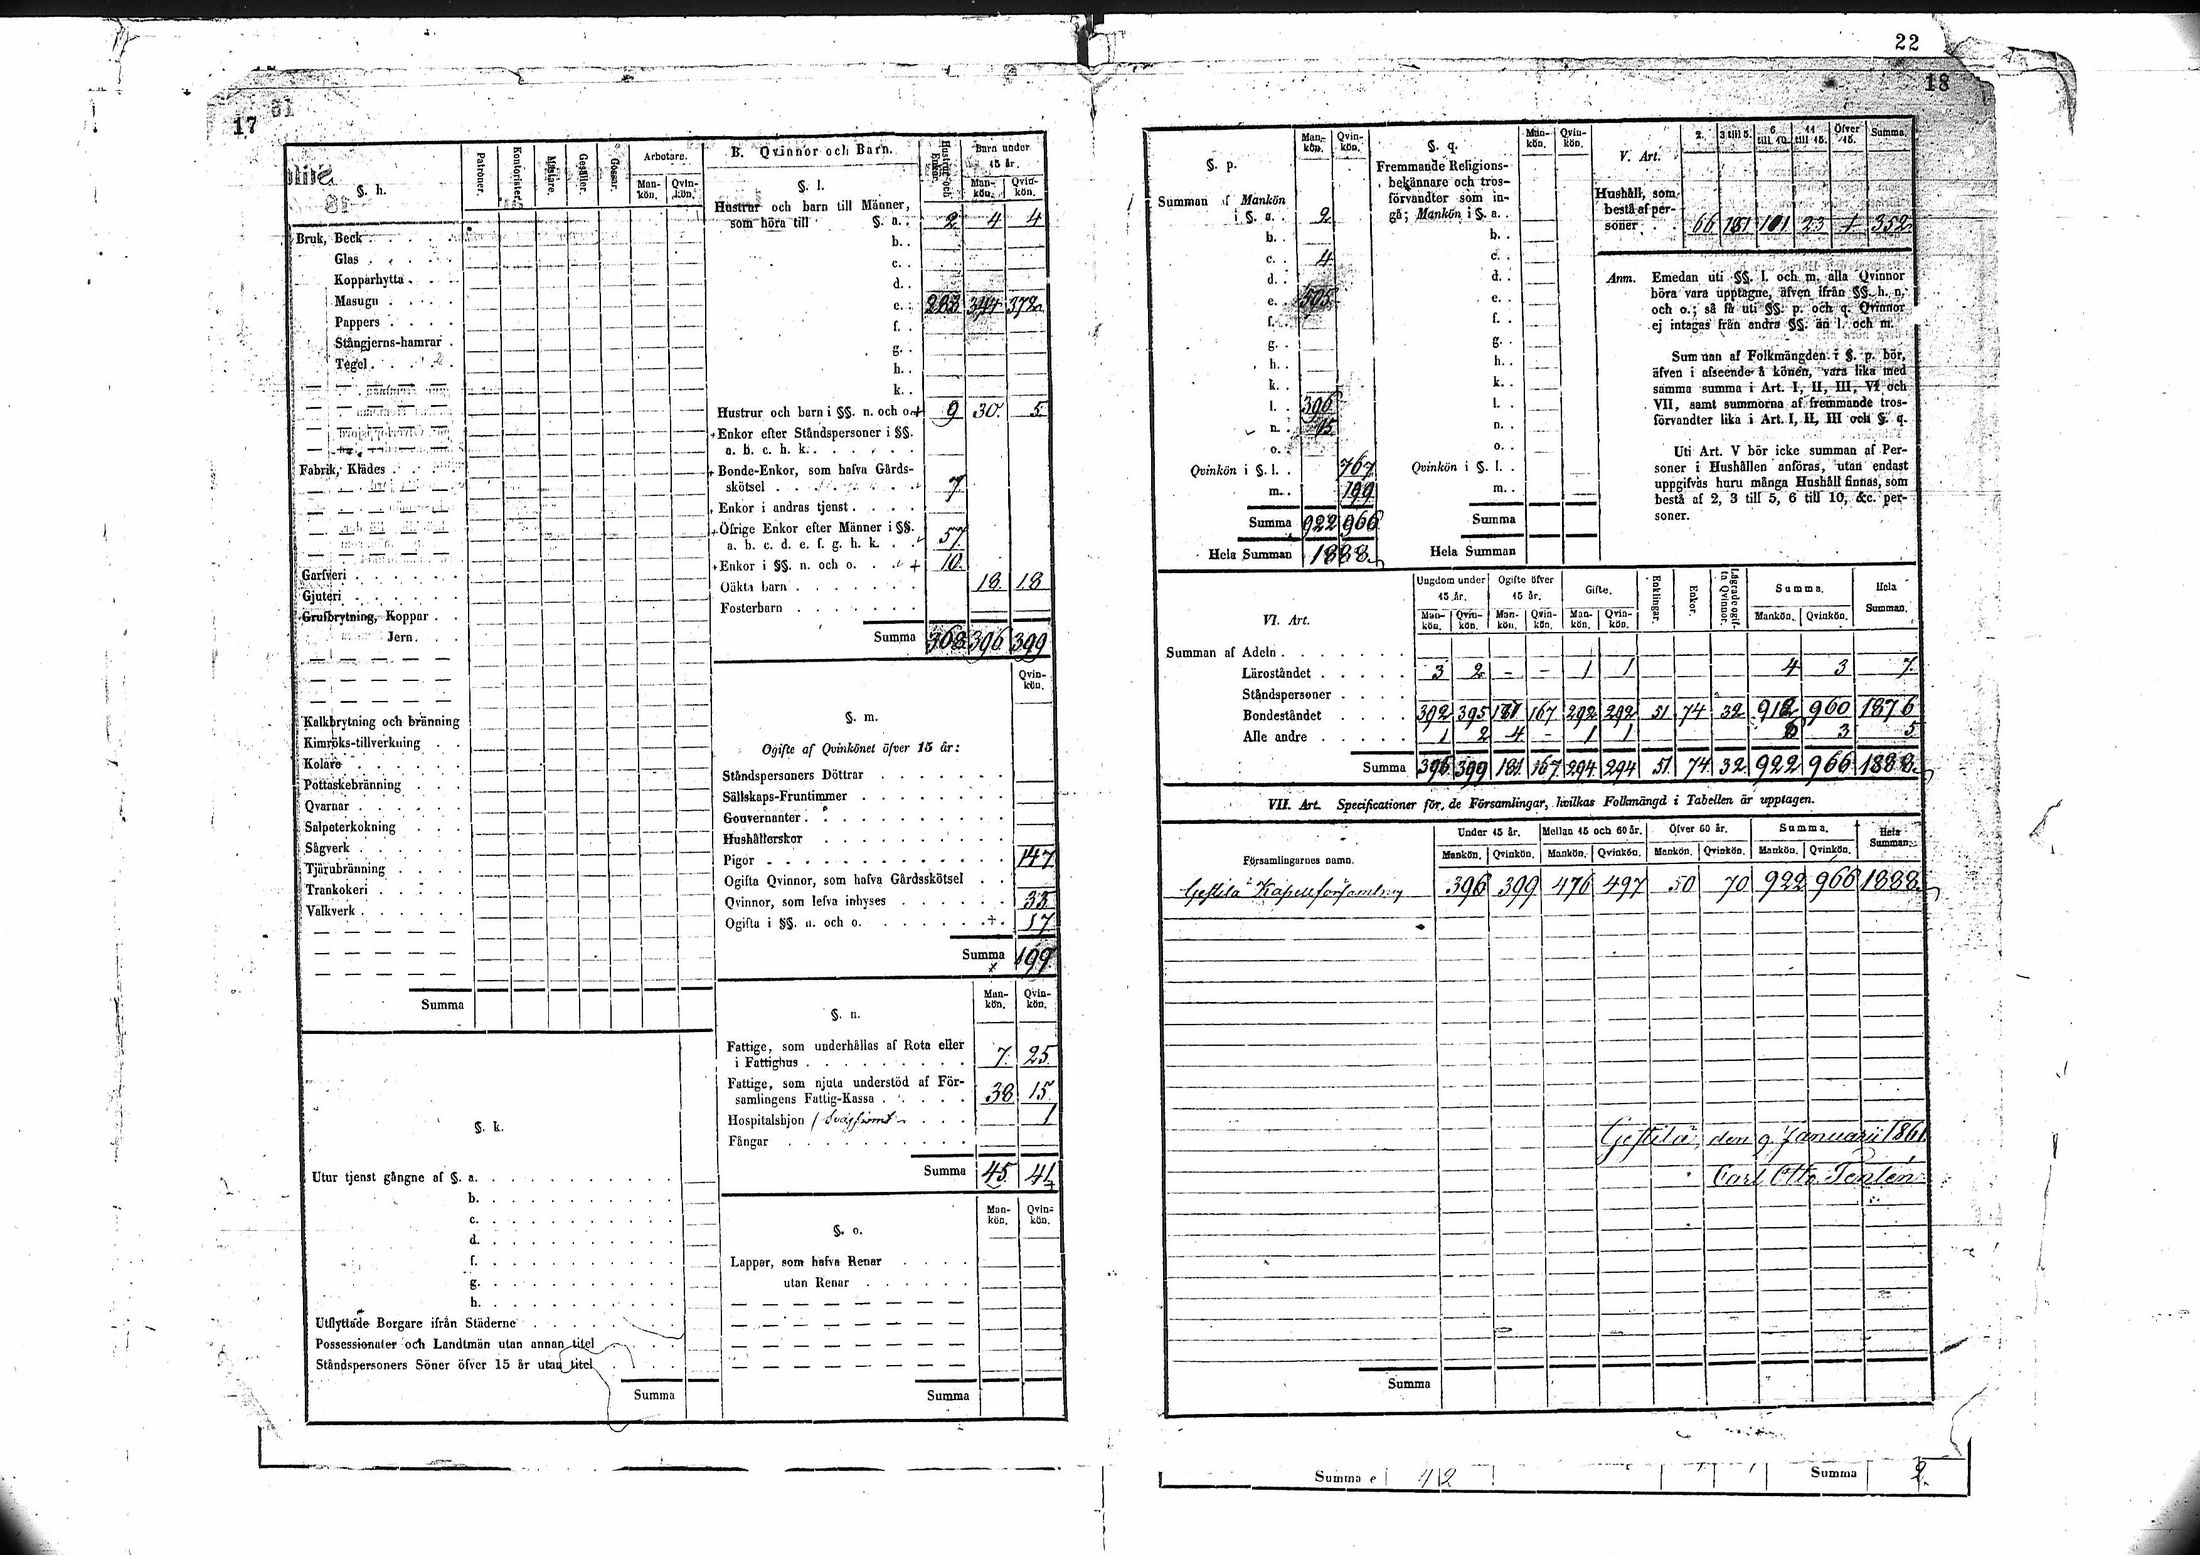 22
18
17
§. h.
Patroner.
Kontorister.
Mästare.
Gesäller.
Gossar.
Arbetare.
Mankön. Qvinkön.
Bruk, Beck
Glas
Kopparhytta
Masugn
Pappers
Stångjerns-hamrar
Tegel
Fabrik, Klädes
Garfveri
Gjuteri
Grufbrytning, Koppar
Jern
Kalkbrytning och bränning
Kimröks-tillverkning
Kolare
Pottaskebränning
Qvarnar
Salpeterkokning
Sågverk
Tjärubränning
Trankokeri
Valkverk
Summa
§. k.
Utur tjenst gångne af §. a.
b.
c.
d.
f.
g.
h.
Utflyttade Borgare ifrån Städerne
Possessionater och Landtmän utan annan titel
Ståndspersoners Söner öfver 15 år utan titel
Summa
B. Qvinnor och Barn.
Hustrur och Enkor.
Barn under 15 år.
Mankön. Qvinkön.
§. l.
Hustrur och barn till Männer,
som höra till §. a. 2 4 4
b.
c.
d.
e. 283 344 372
f.
g.
h.
k.
Hustrur och barn i §§. n. och o. 9 30. 5
Enkor efter Ståndspersoner i §§.
a. b. c. h. k.
Bonde-Enkor, som hafva Gårds-
skötsel 7
Enkor i andras tjenst
Öfrige Enkor efter Männer i §§.
a. b. c. d. e. f. g. h. k. 57
Enkor i §§. n. och o. 10.
Oäkta barn 18. 18
Fosterbarn
Summa 368 396 399
Qvinkön.
§. m.
Ogifte af Qvinkönet öfver 15 år:
Ståndspersoners Döttrar
Sällskaps-Fruntimmer
Gouvernanter
Hushållerskor
Pigor 147
Ogifta Qvinnor, som hafva Gårdsskötsel
Qvinnor, som lefva inhyses 35
Ogifta i §§. n. och o. 17
Summa 199
Mankön. Qvinkön.
§. n.
Fattige, som underhållas af Rota eller
i Fattighus 7. 25
Fattige, som njuta understöd af För-
samlingens Fattig-Kassa 38 15.
Hospitalshjon 1
Fångar
Summa 45. 41
Mankön. Qvinkön.
§. o.
Lappar, som hafva Renar
utan Renar
Summa
§. p.
Mankön. Qvinkön.
Summan af Mankön
i §. a. 2
b.
c. 4
d.
e. 505
f.
g.
h.
k.
l. 396
n. 15
o.
Qvinkön i §. l. 767
m. 199
Summa 922 966
Hela Summan 1888
§. q.
Mankön. Qvinkön.
Fremmande Religions-
bekännare och tros-
förvandter som in-
gå; Mankön i §. a.
b.
c.
d.
e.
f.
g.
h.
k.
l.
n.
o.
Qvinkön i §. l.
m.
Summa
Hela Summan
V. Art.
2. 3 till 5. 6 till 10. 11 till 15. Öfver 15. Summa
Hushåll, som
bestå af per-
soner 66 161 101 23 1 352
Anm. Emedan uti §§. l. och m. alla Qvinnor
böra vara upptagne, äfven ifrån §§. h. n.
och o.; så få uti §§. p. och q. Qvinnor
ej intagas från andra §§. än l. och m.
Summan af Folkmängden i §. p. bör,
äfven i afseende å könen, vara lika med
samma summa i Art. I, II, III, VI och
VII, samt summorna af fremmande tros-
förvandter lika i Art. I, II, III och §. q.
Uti Art. V bör icke summan af Per-
soner i Hushållen anföras, utan endast
uppgifvas huru många Hushåll finnas, som
bestå af 2, 3 till 5, 6 till 10, &c. per-
soner.
VI. Art.
Ungdom under 15 år. Ogifte öfver 15 år. Gifte. Enklingar. Enkor. Lägrade ogifta Qvinnor. Summa. Hela Summan.
Mankön. Qvinkön. Mankön. Qvinkön. Mankön. Qvinkön. Mankön. Qvinkön.
Summan af Adeln
Läroståndet 3 2 - - 1 1 4 3 7.
Ståndspersoner
Bondeståndet 392 395 167 292 292 51 74 32 960 1876
Alle andre 1 2 4 - 1 1 3 5
Summa 396 399 181 167 294 294 51 74 32 922 966 1888
VII. Art. Specificationer för de Församlingar, hvilkas Folkmängd i Tabellen är upptagen.
Församlingarnes namn.
Under 15 år. Mellan 15 och 60 år. Öfver 60 år. Summa. Hela Summan.
Mankön. Qvinkön. Mankön. Qvinkön. Mankön. Qvinkön. Mankön. Qvinkön.
Gestilä Kapellförsamling 396 399 476 497 50 70 922 966 1888
Gestilä den 9 Januarii 1861
Carl Otto
Summa
Summa e 12 Summa 2.